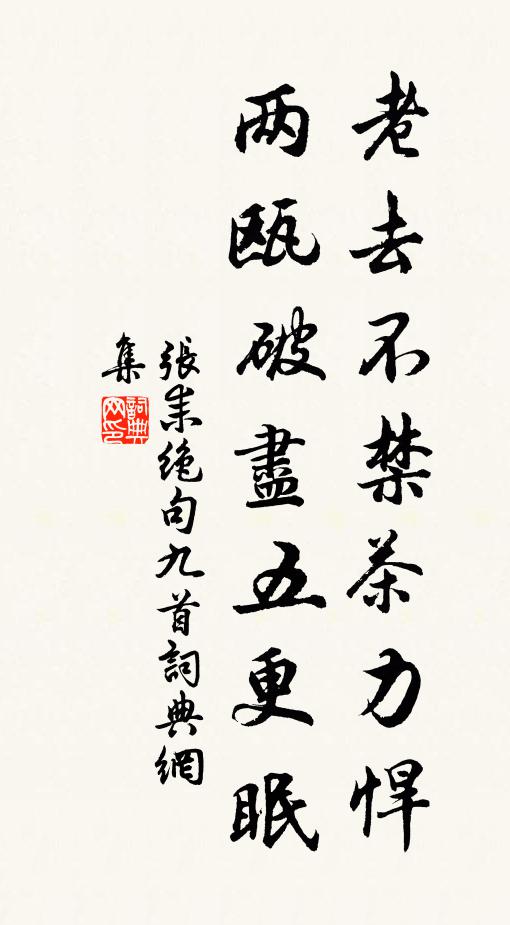 老去不禁茶力悍
两瓯破盡五更眠
張耒绝句九首詞典網
集
詞典网印